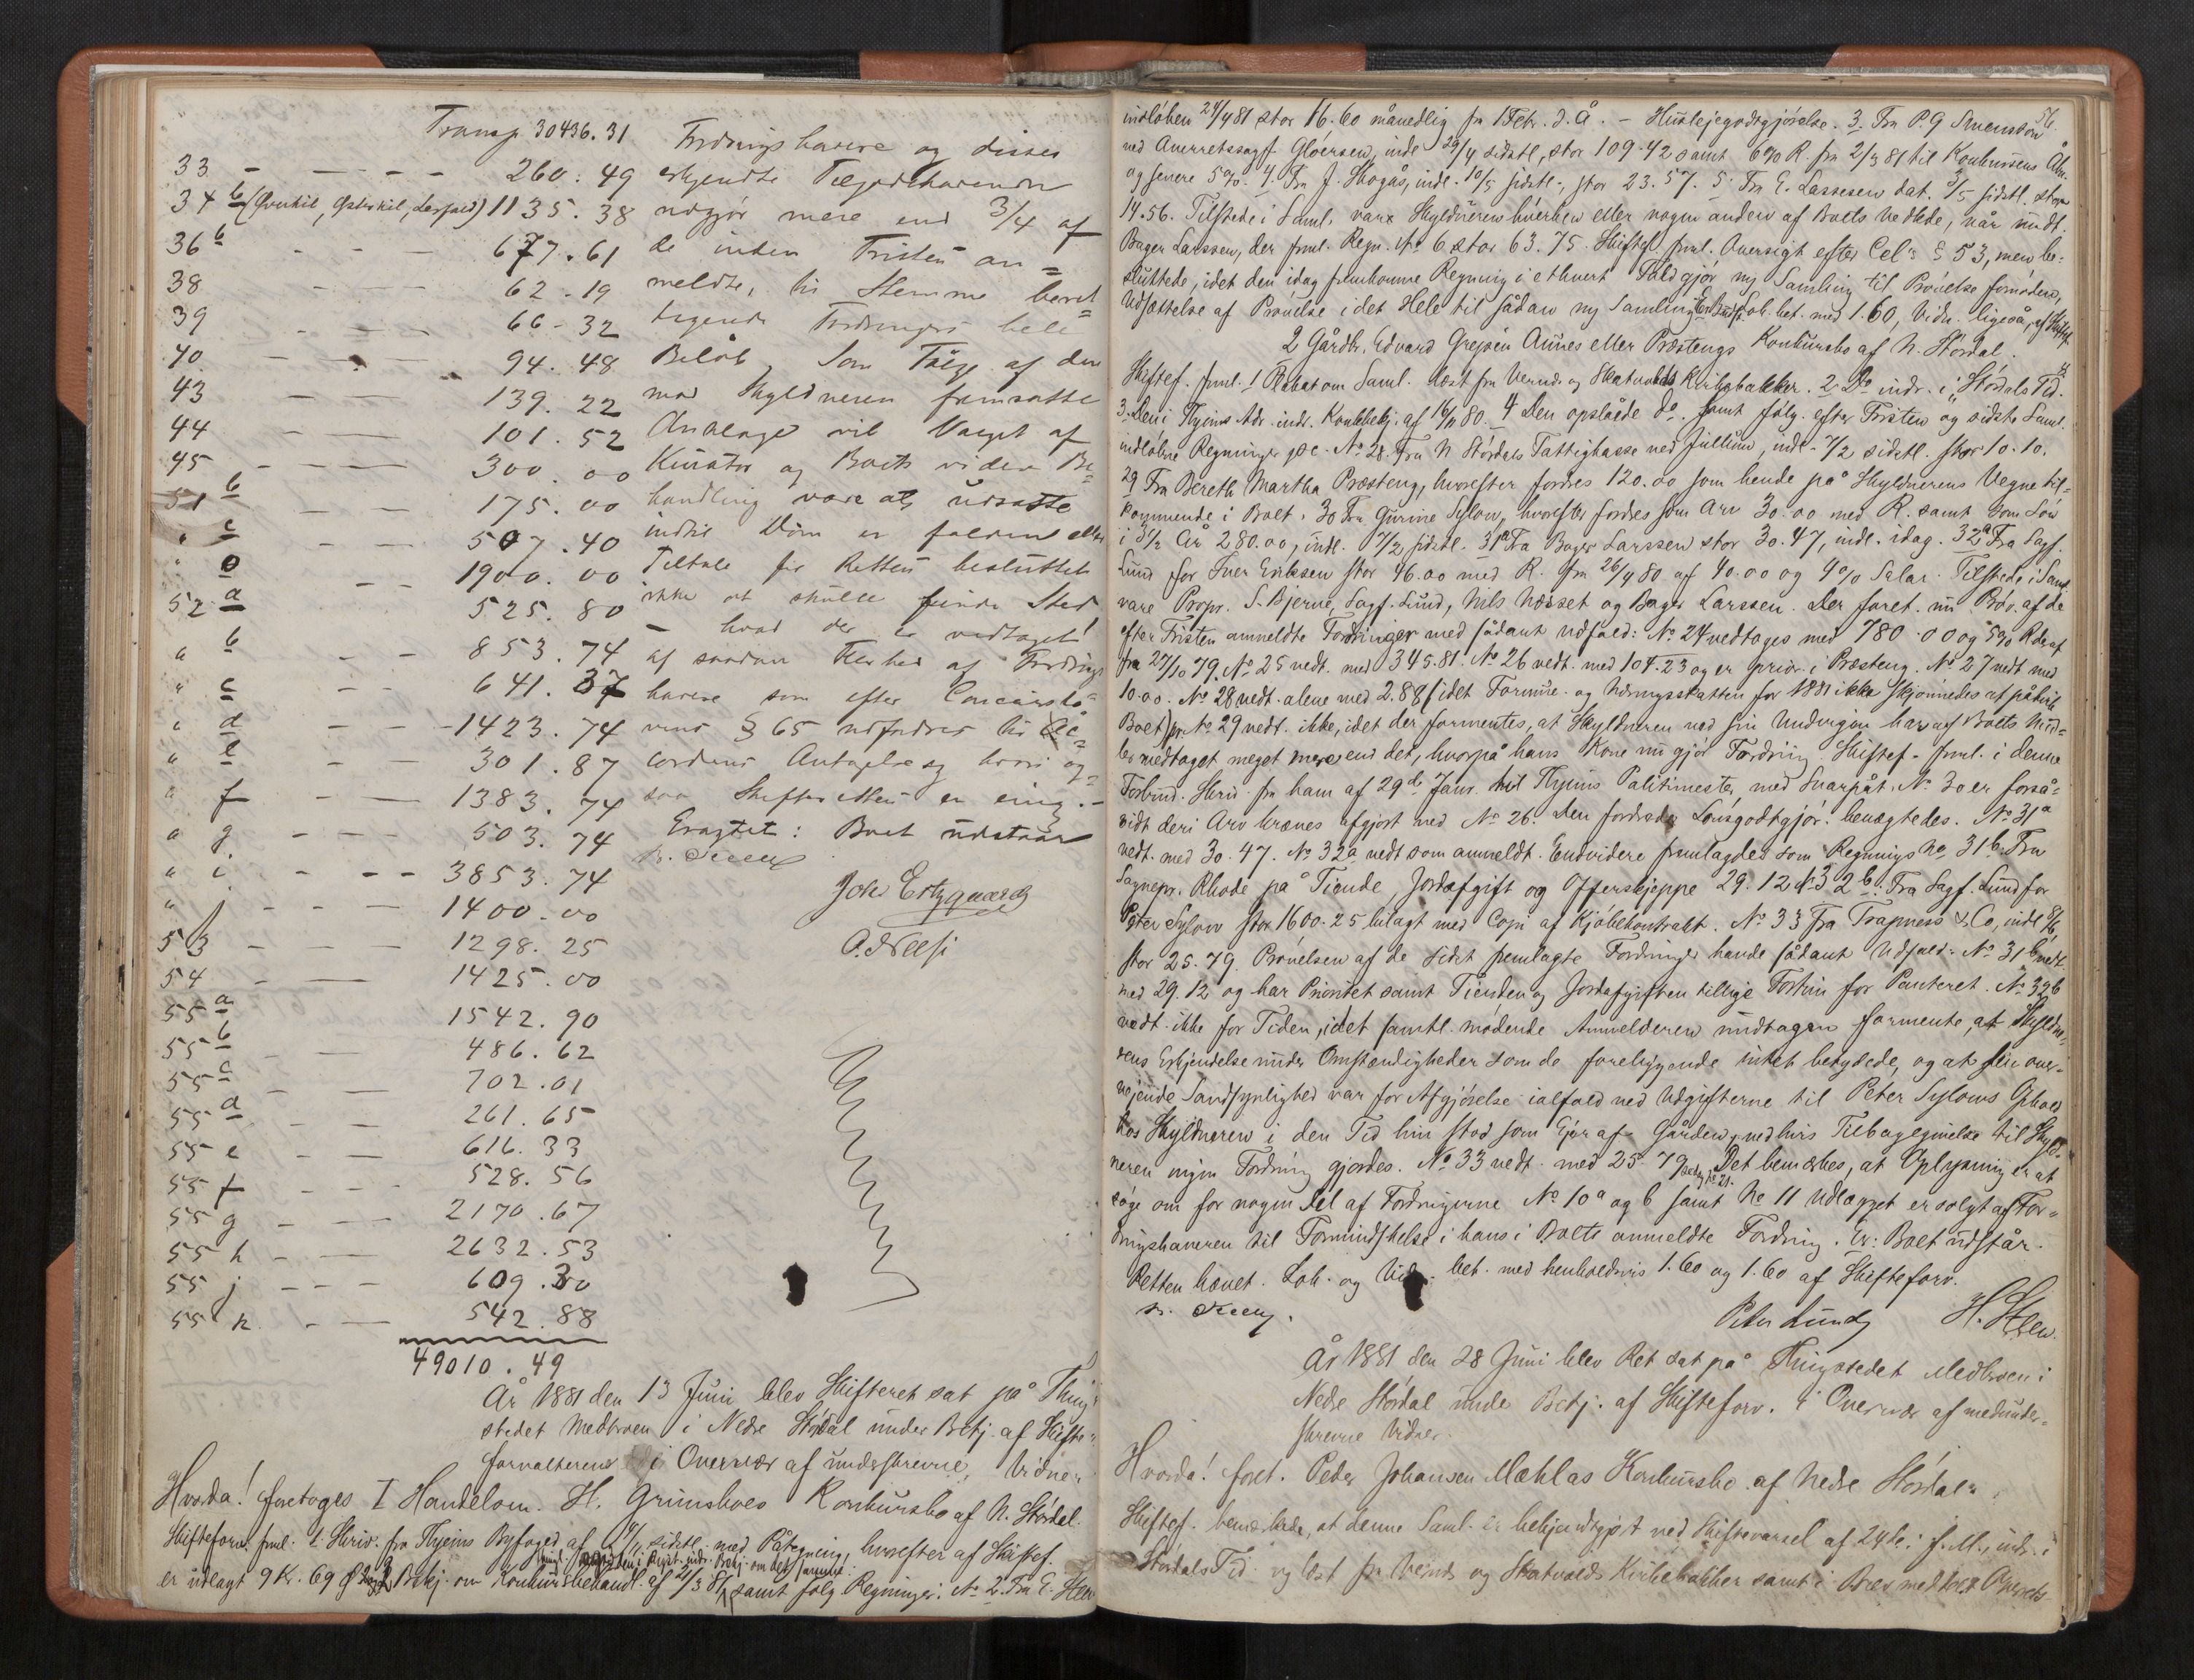 Transp. 30436.31
33 - - - - - 260.49
34 b (Ovenkil, Østerkil, Lerfald) 1135.38
36 b - - - 677.61
38 - - - 62.19
39 - - - 66-32
40 - - - 94.48
43 - - 139.22
44 - - 101.52
45 - - - - 300.00
51 b - - 175.00
" c - - 507.40
" e - - 1900.00
52 a - - 525.80
" b - - 853.74
" c - - 641.37
" d - - - 1423.74
" e - - 301.87
" f - - 1383.74
" g - - - 503.74
" i - - - 3853.74
" j - - - 1400.00
53 - - - 1298.25
54 - - - 1425.00
55 a - - 1542.90
55 b - - 486.62
55 c - - 702.01
55 d - - 261.65
55 e - - 616.33
55 f - - 528.56
55 g - - - 2170.67
55 h - - - 2632.53
55 j - - - 609.30
55 k - - - 542.88
49010.49
Fordringshavere og disses
erkjendte Tilgodehavender
udgjør mere end 3/4 af
de inden Fristen an=
meldte, til Stemme beret=
tigende Fordringers hele
Beløb, Som Følge af den
mod Skyldneren fremsatte
Anklage vil Valget af
Kurator og Boets videre Be=
handling være at udsætte
indtil Dom er falden eller
Tiltale for Retten besluttet
ikke at skulle finde Sted
- hvad der er vedtaget
af saadan Flerhed af Fordrings
havere som efter Concurslo=
vens § 65 udfordres til Ac=
cordens Antagelse og hvori og=
saa Skifteretten er enig. -
Eragtet: Boet udstaar
Joh Ertzgaard
År 1881 den 13 Juni blev Skifteret sat på Thing=
stedet Medbroen i Nedre Stórdal under Betj. af Skifte=
forvalteren i Overvær af underskrevne Vidner.
Hvorda! foretoges I Handelsm. H. Grimskoes Konkursbo af N. Stórdal.
Skifteforv. fml. 1 Skriv. fra Thjems Byfoged af sidstl. med Påtegning, hvorefter af Skiftef.
er udlagt 9 Kr. 69 Ø Bekj. om Konkursbehandl. af 2/3 81 samt følg. Regninger: No 2. Fra E.
56.
indløben 24/4 81 stor 16.60 månedlig fra 1 Febr. d. Å. - Huslejegodtgjórelse. 3. Fra P. G Svensson
ved Overretssagf. Glóersen, indl 29/4 sidstl, stor 109.42 samt 6% R. fra 2/3 81 til Konkursens Åbn.
og senere 5%. 4. Fra J. Skogås, indl. 10/5 sidstl., stor 23.57. 5. Fra E. Lassesen dat. 9/5 sidstl. stor
14.56. Tilstede i Saml. vare Skyldneren hverken eller nogen anden af Boets Vedkede, når undt.
Bager Larssen, der fml. Regn. No 6 stor 63.75. Skiftef. fml. Oversigt efter Cel's § 53, men be=
sluttede, idet den idag fremkomne Regning i ethvert Fald gjør ny Samling til Próvelse fornóden,
Udsættelse af Próvelse i det Hele til sådan ny Samling. Lóh. bet. med 1.60, Vidn. ligeså, af Skiftef.
2 Gårdbr. Edvard Grejsen Aunes eller Præstengs Konkursbo af N. Stórdal.
Skiftef. fml. 1 Plakat om Saml. læst fra Værnes og Skatvolds Kirkebakker. 2 Do indr. i "Stórdals Tid."
3. Den i Thjems Adr. indr. Konkbekj. af 16/11 80. 4 Den opslåede do. samt fólg. efter Fristen og sidste Saml.
indlóbne Regninger pp: No 28. Fra N Stórdals Fattigkasse ved Jullum, indl. 7/2 sidstl. stor 10.10.
29 Fra Bereth Martha Præsteng, hvorefter fordres 120.00 som hende på Skyldnerens Vegne til=
kommende i Boet. 30 Fra Gurine Sylow, hvorefter fordres som Arv 30.00 med R. samt som Lón
i 3 1/2 År 280.00, indl. 7/2 sidstl. 31a Fra Bager Larssen stor 30.47, indl. idag. 32a Fra Sagf.
Lund for Iver Eriksen stor 46.00 med R. fra 26/4 80 af 40.00 og 4% Salær. Tilstede i Saml
vare Propr. S. Bjerne, Sagf. Lund, Nils Næsset og Bager Larssen. Der foret. nu Próv. af de
efter Fristen anmeldte Fordringer med sådant Udfald: No 24 vedtoges med 780.00 og 5% R. deraf
fra 27/10 79. No 25 vedt. med 345.81. No 26 vedt. med 104.23 og er prior. i Præsteng. No 27 vedt. med
10.00. No 28 vedt. alene med 2.88 (idet Formue- og Næringsskatten for 1881 ikke skjønnedes at påhvile
Boet) pr. No 29 vedt. ikke, idet der formentes, at Skyldneren ved sin Undvigen har af Boets Mid=
ler medtaget meget mere end det, hvorpå hans Kone nu gjór Fordring. Skiftef. fml. i denne
Forbind. Skriv. fra ham af 29de Janr. til Thjems Politimester, med Svarpåt. No 30 er forså=
vidt deri Arv kræves afgjort ved No 26. Den fordrede Lónsgodtgjór. benægtedes. No 31a
vedt. med 30.47. No 32a vedt som anmeldt. Endvidere fremlagdes som Regnings No 31b Fra
Sognepr. Rhode på Tiende, Jordafgift og Offerskjeppe 29.12. No 32b. Fra Sagf. Lund for
Peter Sylow stor 1600.25 bilagt med Copi af Kjóbekontrakt. No 33 Fra Trapness & Co, indl 8/6,
stor 25.79. Próvelsen af de sidst fremlagte Fordringer havde sådant Udfald: No 31b vedt.
med 29.12 og har Prioritet samt Tienden og Jordafgiften tillige Fortrin for Panteret. No 32b
vedt. ikke for Tiden, idet samtl. módende Anmelderen undtagen formente, at Skyldne=
rens Erkjendelse under Omstændigheder som de foreliggende intet betydede, og at der over=
vejende Sandsynlighed var for Afgjórelse ialfald ved Udgifterne til Peter Sylows Ophold
hos Skyldneren i den Tid hin stod som Ejer af Gården, ved hvis Tilbagegivelse til Skyld=
neren ingen Fordring gjordes. No 33 vedt. med 25.79. Det bemærkes, at Oplysning er at
søge om for nogen Del af Fordringerne No 10a og b samt No 11 Udlægget er solgt af For=
dringshaveren til Formindskelse i hans i Boet anmeldte Fordring. Er: Boet udstår.
Retten hævet. Lóh. og Vidn. bet. med henholdsvis 1.60 og 1.60 af Skifteforv.
Peter Lund
År 1881 den 28 Juni blev Ret sat på Thingstedet Medbroen i
Nedre Stórdal under Betj. af Skifteforv. i Overvær af medunder=
skrevne Vidner.
Hvorda! foret. Peder Johansen Mæhlas Konkursbo af Nedre Stórdal.
Skiftef. bemærkede, at denne Saml. er bekjendtgjort ved Skiftevarsel af 24de f. M., indr. i
Stórdals Tid. og læst fra Værnes og Skatvolds Kirkebakker samt i Brev med